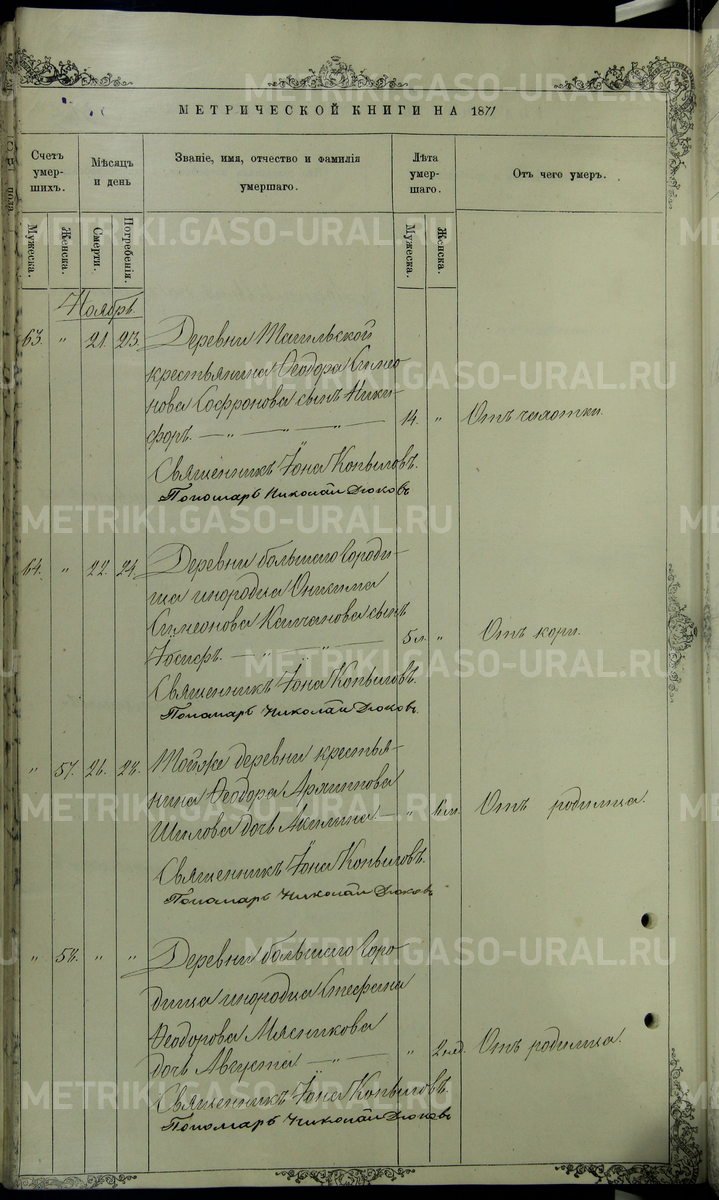 МЕТРИЧЕСКОЙ КНИГИ НА 1877
Счетъ умершихъ.
Мѣсяцъ и день
Званіе, имя, отчество и фамилія умершаго.
Лѣта умершаго.
Отъ чего умеръ.
Мужеска.
Женска.
Смерти.
Погребенія.
Мужеска.
Женска.
Ноябрь
63. " 21. 23. Деревни Тагильской
крестьянина Ѳеодора Симео
нова Софронова сынъ Ники-
форъ. — " — " — 14. " Отъ чахотки.
Священникъ Іона Копыловъ.
Пономарь Николай Дюковъ
64. " 22. 24. Деревни большаго Городи-
ща инородца Онисима
Симеонова Калганова сынъ
Іосифъ. — " — " — 5 л. " Отъ кори.
Священникъ Іона Копыловъ.
Пономарь Николай Дюковъ
" 57. 26. 28. Тойже деревни крестья-
нина Ѳеодора
Шилова дочь Акилина — " Отъ родимца.
Священникъ Іона Копыловъ.
Пономарь Николай Дюковъ
" 58. " " Деревни большаго Горо-
дища инородца Стефана
Ѳеодорова Мясникова
дочь Августа — " — " 2 нед. Отъ родимца.
Священникъ Іона Копыловъ
Пономарь Николай Дюковъ
METRIKI.GASO-URAL.RU